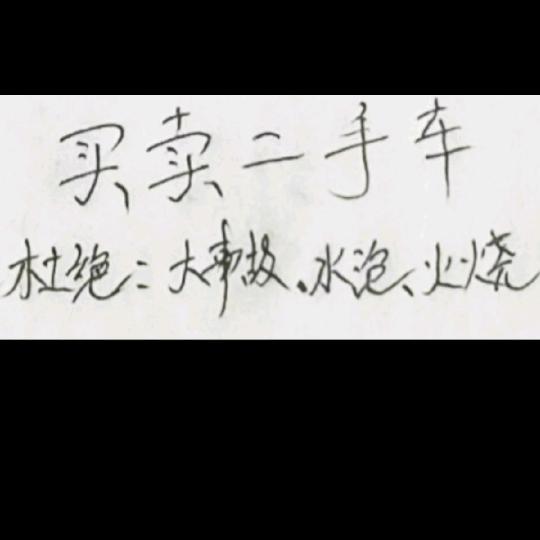 买卖二手车
杜绝：大事故、水泡、火烧